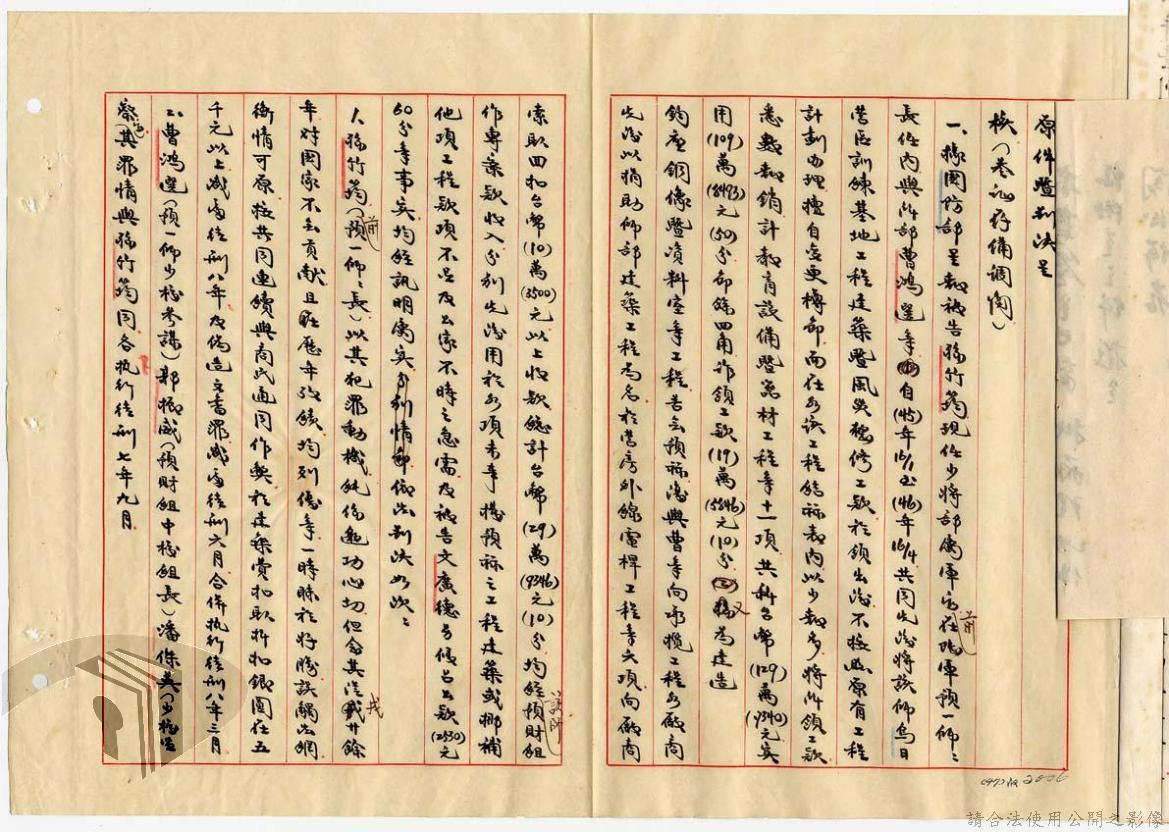 原件暨判決呈
核(卷訖存備調閱)
一、據國防部呈報被告楊竹筠現任少將部屬軍官前在陸軍預一師師
長任內與所部曹鴻選等自(45)年16/1至(46)年16/4共同先後將該師烏日
營區訓練基地工程建築暨風災整修工款於領出後不按照原有工程
計劃辦理擅自變更標節而在各該工程結算表內以少報多將所領工款
悉數報銷計教育設備暨器材工程等十一項共新台幣(129)萬(9340)元實
用(109)萬(8493)元(50)分節餘四角詐領工款(19)萬(5546)元(10)分又楊為建造
鈞座銅像暨資料室等工程苦無預算復與曹等向承攬工程各廠商
先後以捐助師部建築工程為名於營房外線電桿工程等六項向廠商
索取四扣台幣(10)萬(3500)元以上收款總計台幣(29)萬(9346)元(10)分均經預財組
作專案款收入分別先後用於各項未奉核預算之工程建築或挪補
他項工程款項不足及公家不時之急需及被告文廣德另侵占公款(2530)元
60分等事實均經訊明屬實分別情節依法判決如次:
1、楊竹筠(前預一師師長)以其犯罪動機純係邀功心切但念其從戎廿餘
年對國家不無貢獻且歷年考績均列優等一時昧於好勝誤觸法網
衡情可原拉共同連續與商民通同作弊於建築費扣取折扣銀圓在五
千元以上減處徒刑八年及偽造文書罪減處徒刑六月合併執行徒刑八年三月
2、曹鴻選(預一師少校參謀)郭振威(預財組中校組長)潘保英(少校
察官)其罪情與楊竹筠同各執行徒刑七年九月
請合法使用公開之影像